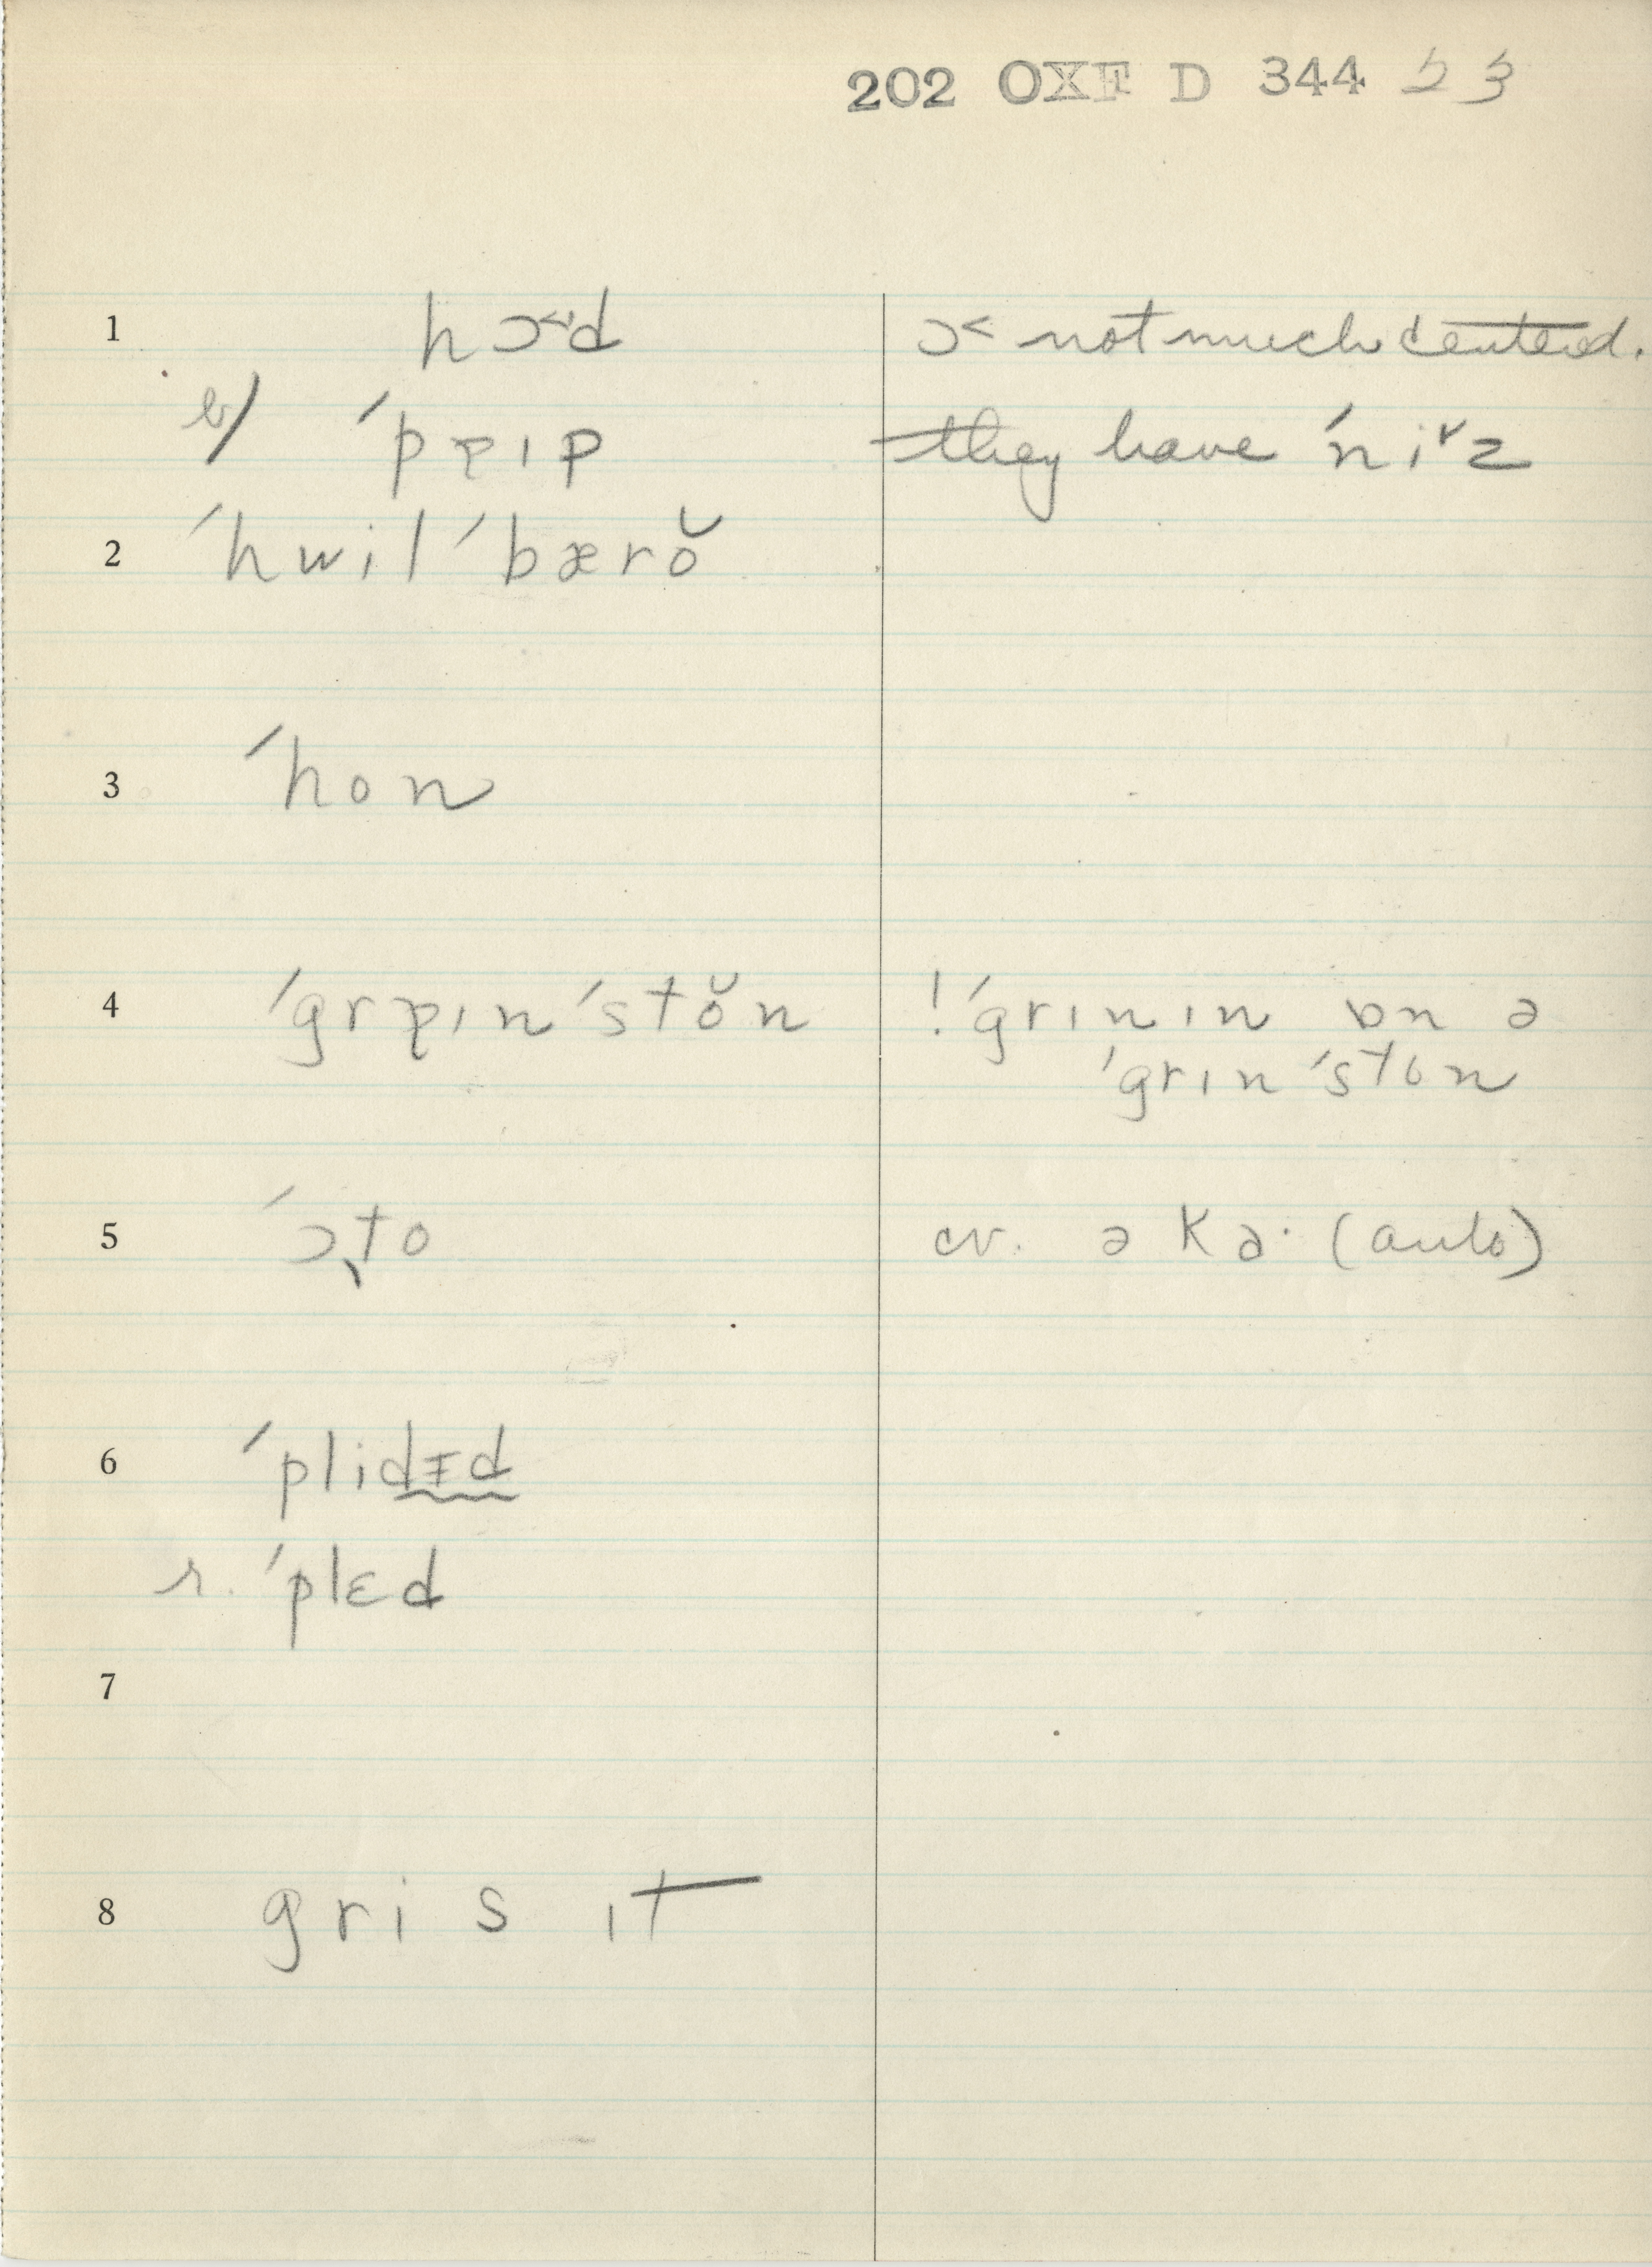 202 OXF D 344 23
1 hɔ˂'d ɔ˂ not much centered.
b/ ˊpɐɪp they have ˊni˅z
2 ˊhwilˊbærŏ
3 ˊhon
4 ˊgrɐɪnˊstŏn !ˊgrɪnɪn ɒn ə
ˊgrɪnˊston
5 ˊɔ̨to cv. ə kɑ· (auto)
6 ˊplidᵻd
r. ˊplɛd
7
8 gris ɪt